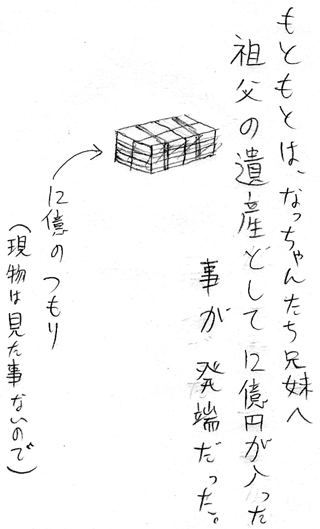 もともとは、なっちゃんたち兄妹へ
祖父の遺産として12億円が入った
事が発端だった。
12億のつもり
(現物は見た事ないので)